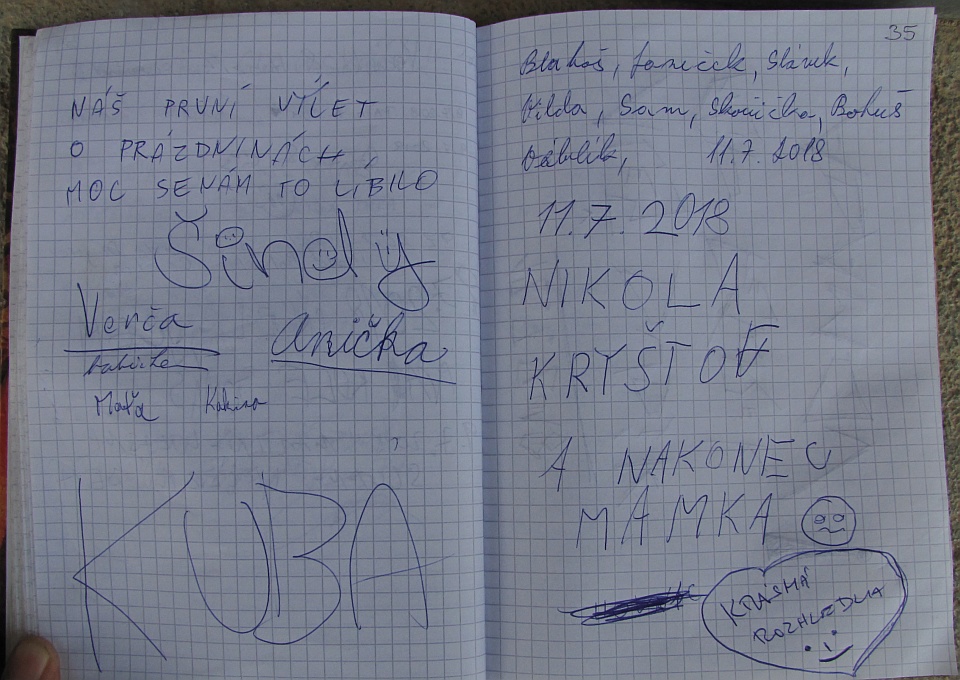 NÁŠ PRVNÍ VÝLET
O PRÁZDNINÁCH
MOC SE NÁM TO LÍBILO
Šindy
Venča
Anička
babička
Maťa
KUBA
35
Blahoš, Janiček, Slávek,
Vilda, Sam, Skonička, Bohuš
Ďáblík, 11.7.2018
11.7.2018
NIKOLA
KRYŠTOF
A NAKONEC
MAMKA
KRÁSNÁ
ROZHLEDNA